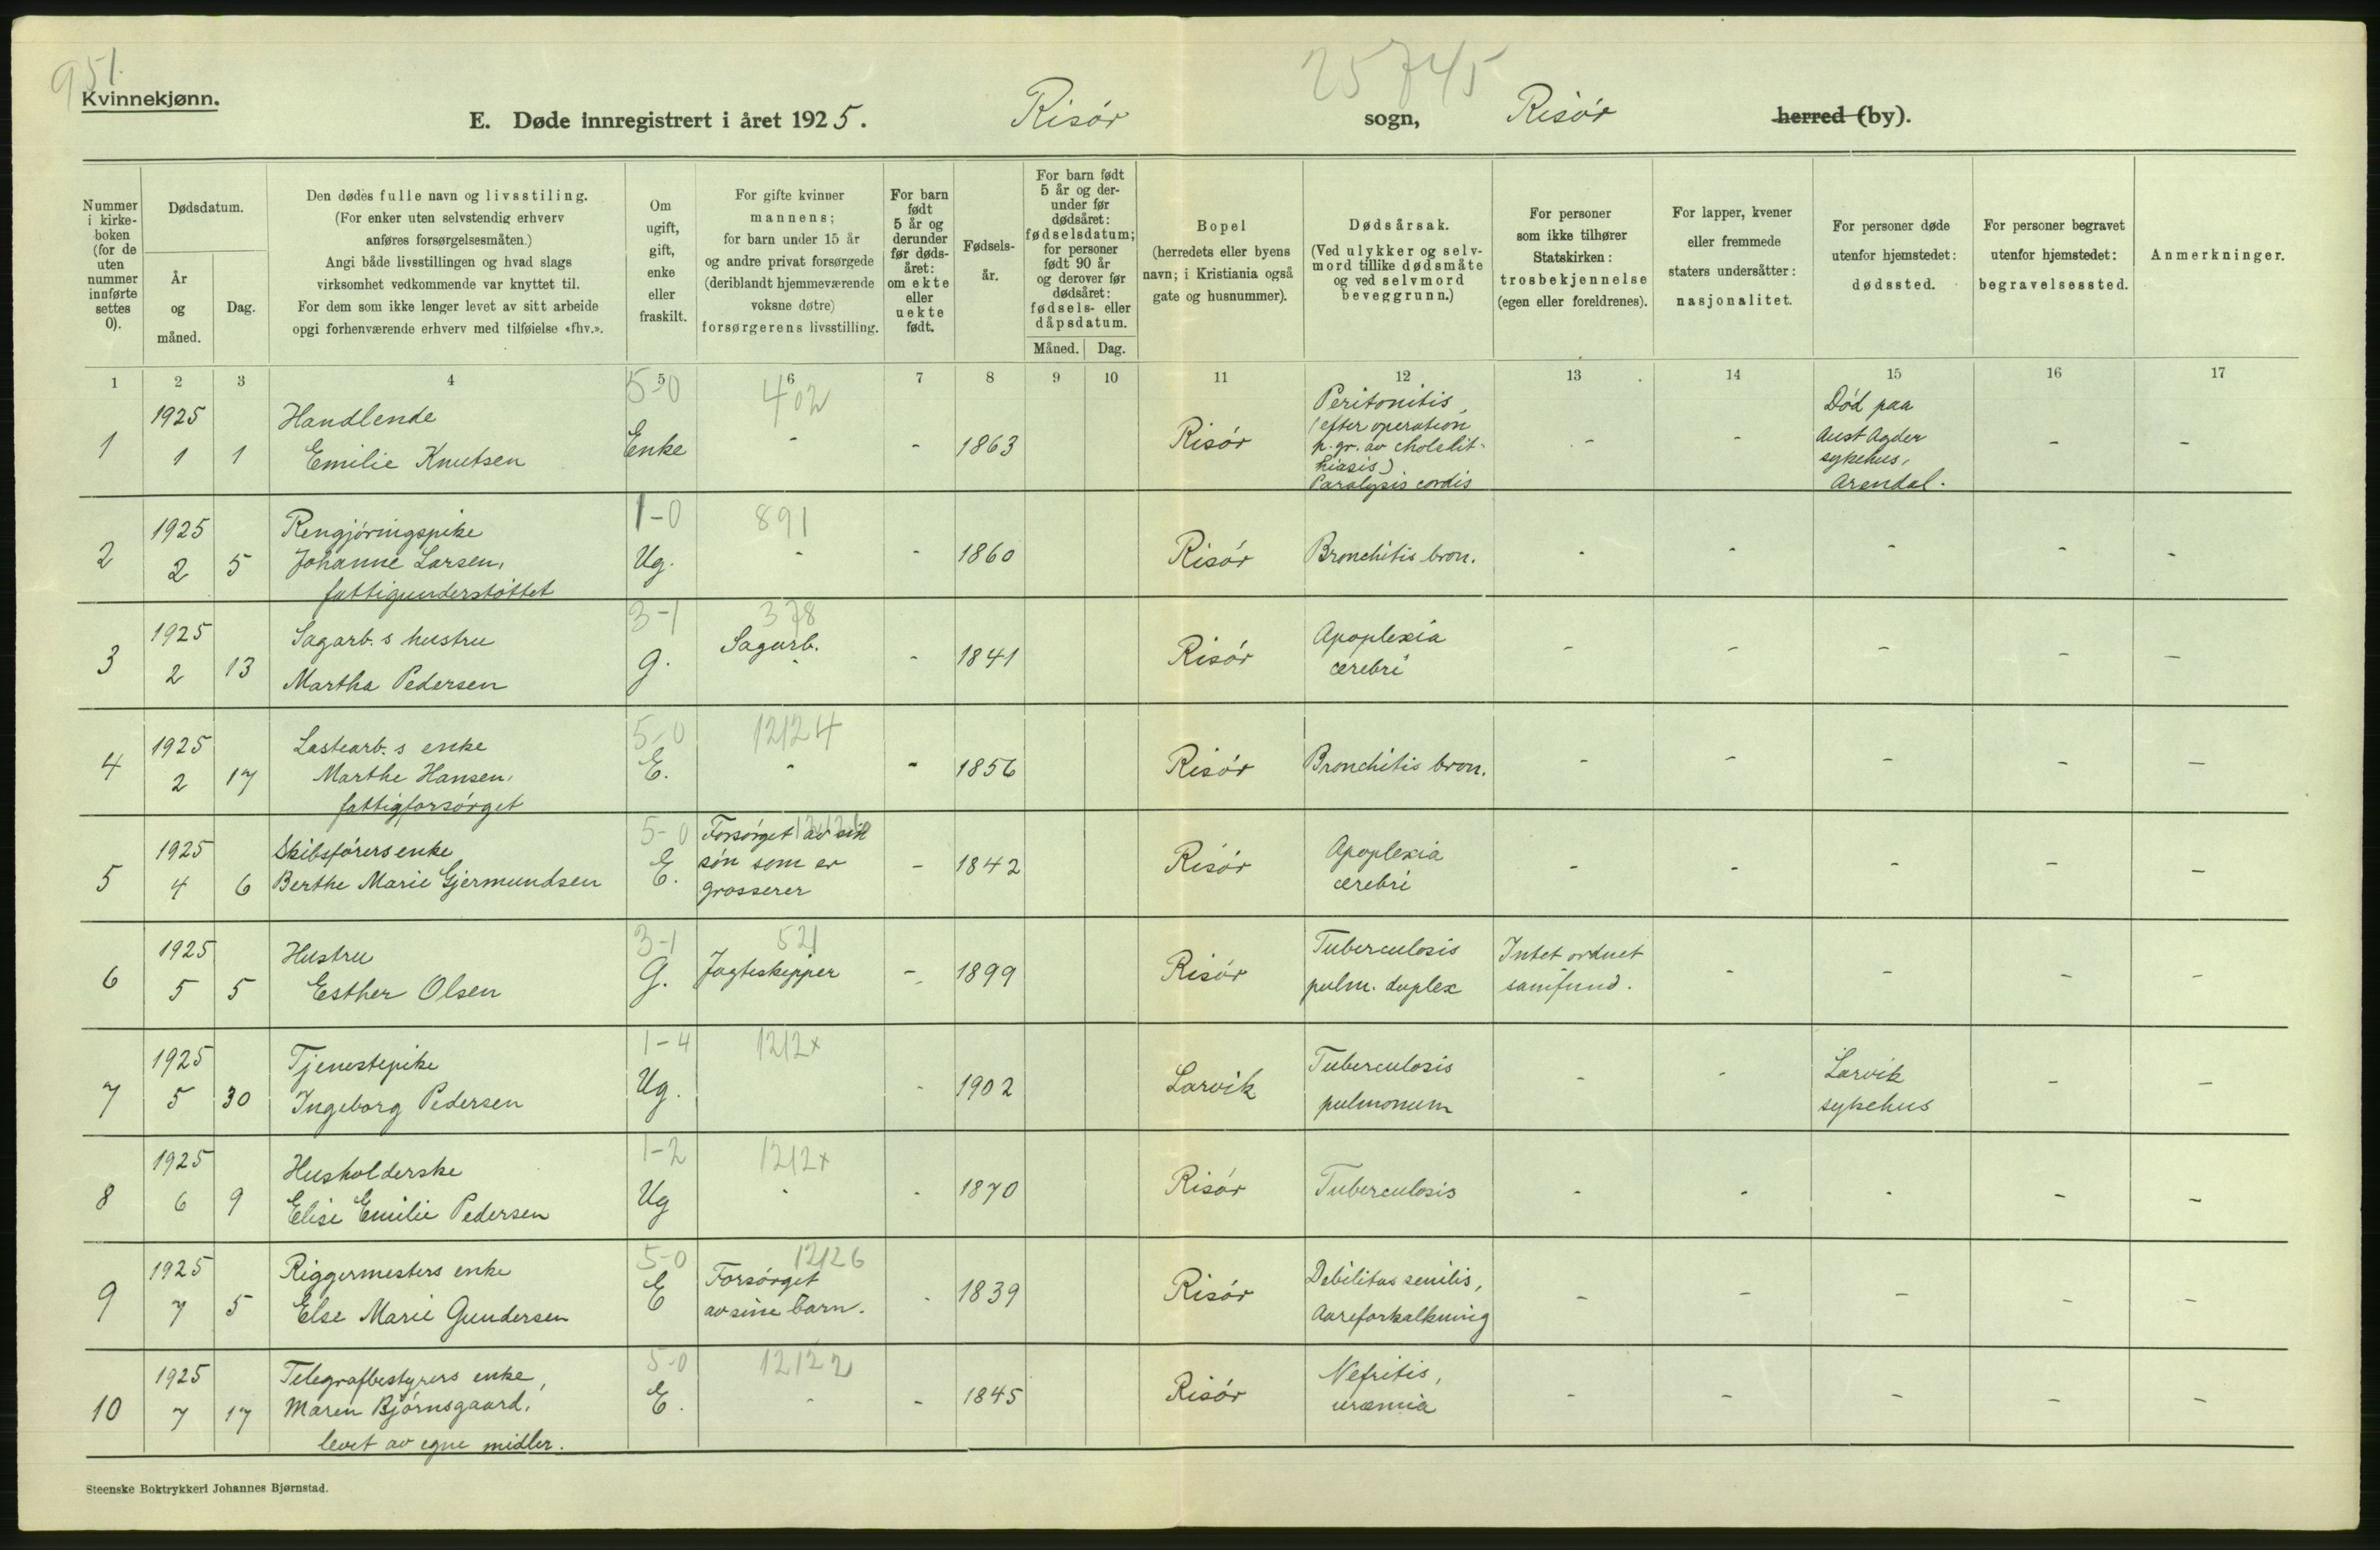 951.
25745
Kvinnekjønn.
E. Døde innregistrert i året 1925. Risør sogn, Risør herred (by).
Nummer
i kirke-
boken
(for de
uten
nummer
innførte
settes
0).
Dødsdatum.
År
og
måned.
Dag.
Den dødes fulle navn og livsstiling.
(For enker uten selvstendig erhverv
anføres forsørgelsesmåten.)
Angi både livsstillingen og hvad slags
virksomhet vedkommende var knyttet til.
For dem som ikke lenger levet av sitt arbeide
opgi forhenværende erhverv med tilføielse «fhv.».
Om
ugift,
gift,
enke
eller
fraskilt.
For gifte kvinner
mannens;
for barn under 15 år
og andre privat forsørgede
(deriblandt hjemmeværende
voksne døtre)
forsørgerens livsstilling.
For barn
født
5 år og
derunder
før døds-
året:
om ekte
eller
uekte
født.
Fødsels-
år.
For barn født
5 år og der-
under før
dødsåret:
fødselsdatum;
for personer
født 90 år
og derover før
dødsåret:
fødsels- eller
dåpsdatum.
Måned. Dag.
Bopel
(herredets eller byens
navn; i Kristiania også
gate og husnummer).
Dødsårsak.
(Ved ulykker og selv-
mord tillike dødsmåte
og ved selvmord
beveggrunn.)
For personer
som ikke tilhører
Statskirken:
trosbekjennelse
(egen eller foreldrenes).
For lapper, kvener
eller fremmede
staters undersåtter:
nasjonalitet.
For personer døde
utenfor hjemstedet:
dødssted.
For personer begravet
utenfor hjemstedet:
begravelsessted.
Anmerkninger.
1 2 3 4 5 6 7 8 9 10 11 12 13 14 15 16 17
5-0 402
1
1925
1 1
Handlende
Emilie Knutsen
Enke - - 1863 Risør
Peritonitis,
(efter operation
p. gr. av cholelit-
hiasis)
Paralysis cordis
- -
Død paa
Aust Agder
sykehus,
Arendal.
- -
1-0 891
2
1925
2 5
Rengjøringspike
Johanne Larsen,
fattigunderstøttet
Ug. - - 1860 Risør Bronchitis kron. - - - - -
3-1 378
3
1925
2 13
Sagarb.s hustru
Martha Pedersen
g. Sagarb. - 1841 Risør
Apoplexia
cerebri
- - - - -
5-0 12124
4
1925
2 17
Lastearb.s enke
Marthe Hansen,
fattigforsørget
E. - - 1856 Risør Bronchitis kron. - - - - -
5-0
5
1925
4 6
Skibsførers enke
Berthe Marie Gjermundsen
E.
Forsørget av sin
søn som er
grosserer
- 1842 Risør
Apoplexia
cerebri
- - - - -
3-1 521
6
1925
5 5
Hustru
Esther Olsen
G. Jagteskipper - 1899 Risør
Tuberculosis
pulm. duplex
Intet ordnet
samfund.
- - - -
1-4 1212x
7
1925
5 30
Tjenestepike
Ingeborg Pedersen
Ug. - 1902 Larvik
Tuberculosis
pulmonum
- -
Larvik
sykehus
- -
1-2 1212x
8
1925
6 9
Husholderske
Elise Emilie Pedersen
Ug - - 1870 Risør Tuberculosis - - - - -
5-0 12126
9
1925
7 5
Riggermesters enke
Else Marie Gundersen
E
Forsørget
av sine barn.
- 1839 Risør
Debilitas senilis,
Aareforkalkning
- - - - -
5-0 12122
10
1925
7 17
Telegrafbestyrers enke,
Maren Bjørnsgaard,
levet av egne midler.
E. - - 1845 Risør
Nefritis,
uræmia
- - - - -
Steenske Boktrykkeri Johannes Bjørnstad.